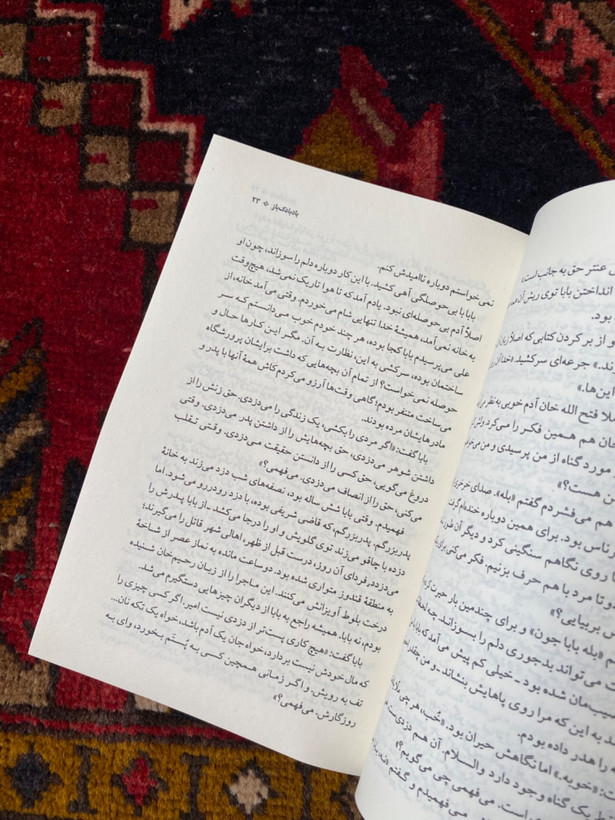 عنتر حق به جانب است،
انداختن بابا توی ریش آن
بود.
و از بر کردن کتابی که اصلاً زبان
جرعه‌ای سرکشید.
این ها.»
فتح الله خان آدم خوبی به نظر
هم همین فکر را می‌کرد
مورد گناه از من پرسیدی و من
هست؟»
می‌فشردم گفتم «بله». صدای
ناس بود. برای همین دوباره
روی نگاهم سنگینی کرد و دیگر آن
تا مرد با هم حرف بزنیم. فکر می‌کنی
بربیایی؟»
«بله بابا جون» و برای چندمین بار حیرت
می‌تواند بدجوری دلم را بسوزاند.
شده بود - خیلی کم پیش می‌آمد که بابا
به این که مرا روی پاهایش بنشاند - و من
را هدر داده بودم.
«خوبه» اما نگاهش حیران بود. «خب، هر چی
یک گناه وجود دارد والسلام. آن هم دزدی
است. می‌فهمی چی می‌گویم؟»
می‌فهمیدم و گفتم
بادبادک‌باز ❖ ۲۳
نمی‌خواستم دوباره ناامیدش کنم.
بابا با بی حوصلگی آهی کشید. با این کار دوباره دلم را سوزاند، چون او
اصلاً آدم بی حوصله‌ای نبود. یادم آمد که تا هوا تاریک نمی‌شد، هیچ‌وقت
به خانه نمی‌آمد، همیشهٔ خدا تنهایی شام می‌خوردم. وقتی می‌آمد خانه، از
علی می‌پرسیدم بابا کجا بوده، هر چند خودم خوب می‌دانستم که سر
ساختمان بوده، سرکشی به این، نظارت به آن. مگر این کارها حال و
حوصله نمی‌خواست؟ از تمام آن بچه‌هایی که داشت برایشان پرورشگاه
می‌ساخت متنفر بودم؛ گاهی وقت‌ها آرزو می‌کردم کاش همهٔ آنها با پدر و
مادرهایشان مرده بودند.
بابا گفت: «اگر مردی را بکشی، یک زندگی را می‌دزدی. حق زنش را از
داشتن شوهر می‌دزدی، حق بچه‌هایش را از داشتن پدر می‌دزدی. وقتی
دروغ می‌گویی، حق کسی را از دانستن حقیقت می‌دزدی. وقتی تقلب
می‌کنی، حق را از انصاف می‌دزدی. می‌فهمی؟»
فهمیدم. وقتی بابا شش ساله بود، نصفه‌های شب دزد می‌زند به خانهٔ
پدربزرگم. پدربزرگم، که قاضی شریفی بوده، با دزد رودررو می‌شود، اما
دزده با چاقو می‌زند توی گلویش و او را درجا می‌کشد - از بابا پدرش را
می‌دزدد. فردای آن روز، درست قبل از ظهر، اهالی شهر قاتل را می‌گیرند؛
به منطقهٔ قندوز متواری شده بود. دو ساعت مانده به نماز عصر از شاخهٔ
درخت بلوط آویزانش می‌کنند. این ماجرا را از زبان رحیم خان شنیده
بودم، نه بابا. همیشه راجع به بابا از دیگران چیزهایی دستگیرم می‌شد.
بابا گفت: «هیچ کاری پست‌تر از دزدی نیست امیر. اگر کسی چیزی را
که مال خودش نیست بردارد، خواه جان یک آدم باشد، خواه یک تکه نان...
تف به رویش. و اگر زمانی همچین کسی به پُستم بخورد، وای به
روزگارش. می‌فهمی؟»